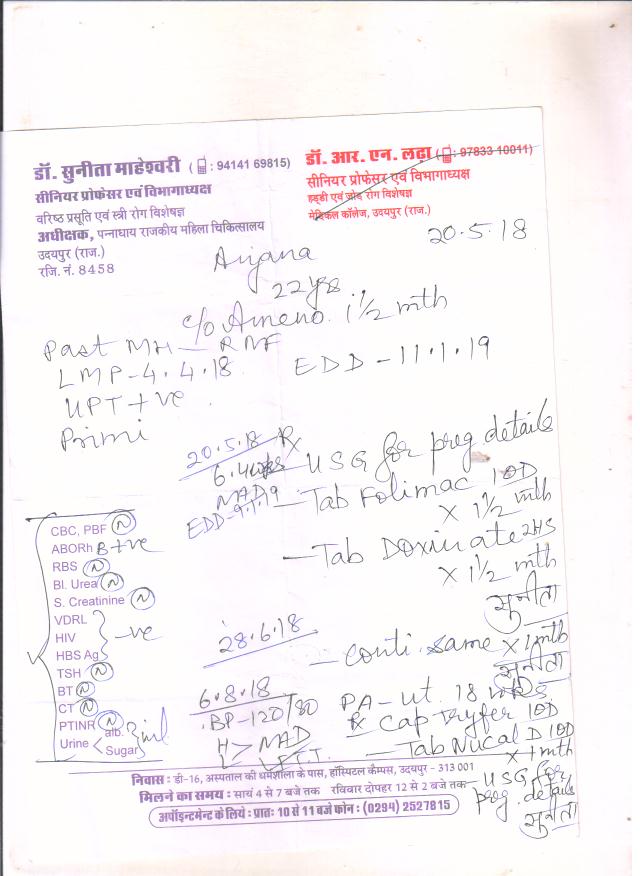 डॉ. सुनीता माहेश्वरी ( : 94141 69815)
सीनियर प्रोफेसर एवं विभागाध्यक्ष
वरिष्ठ प्रसूति एवं स्त्री रोग विशेषज्ञ
अधीक्षक, पन्नाधाय राजकीय महिला चिकित्सालय
उदयपुर (राज.)
रजि. नं. 8458
डॉ. आर. एन. लढ़ा ( : 97833 10011)
सीनियर प्रोफेसर एवं विभागाध्यक्ष
हड्डी एवं जोड़ रोग विशेषज्ञ
मेडिकल कॉलेज, उदयपुर (राज.)
20.5.18
Anjana
22 yrs
c/o Ameno. 1 1/2 mth
Past MH - RNF
LMP - 4.4.18
EDD - 11.1.19
UPT +ve
Primi
20.5.18
6.4 wks
NAD
EDD-9.1.19
Rx
- USG for preg details
- Tab Folimac 1OD
x 1 1/2 mth
- Tab Doxinate 2HS
x 1 1/2 mth
सुनीता
CBC, PBF N
ABORh B+ve
RBS N
Bl. Urea N
S. Creatinine N
VDRL
HIV -ve
HBS Ag
TSH N
BT N
CT N
PTINR N
Urine alb. Sugar nil
28.6.18
- Conti. same x 1 mth
सुनीता
6.8.18
BP-120/80
H NAD
L
PA - ut. 18 wks
Rx Cap 1OD
- Tab Nucal D 1OD
x 1 mth
- USG for
preg. details
सुनीता
निवास : डी-16, अस्पताल की धर्मशाला के पास, हॉस्पिटल कैम्पस, उदयपुर - 313 001
मिलने का समय : सायं 4 से 7 बजे तक रविवार दोपहर 12 से 2 बजे तक
अपॉइन्टमेन्ट के लिये : प्रातः 10 से 11 बजे फोन : (0294) 2527815